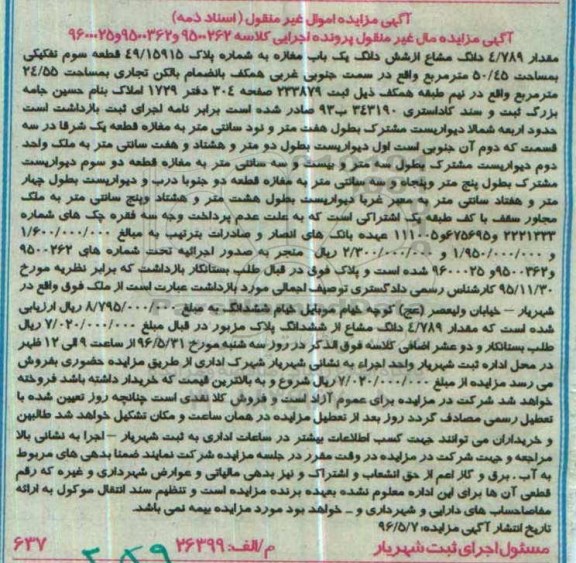 آگهی مزایده اموال غیر منقول (اسناد ذمه)
آگهی مزایده مال غیر منقول پرونده اجرایی کلاسه ۹۵۰۰۲۶۲ و۹۵۰۰۳۶۲و۹۶۰۰۰۲۵
مقدار ۴/۷۸۹ دانگ مشاع ازشش دانگ یک باب مغازه به شماره پلاک ۴۹/۱۵۹۱۵ قطعه سوم تفکیکی
بمساحت ۵۰/۴۵ مترمربع واقع در سمت جنوبی غربی همکف بانضمام بالکن تجاری بمساحت ۲۴/۵۵
مترمربع واقع در نیم طبقه همکف ذیل ثبت ۲۳۳۸۷۹ صفحه ۳۰۴ دفتر ۱۷۲۹ املاک بنام حسین جامه
بزرگ ثبت و سند کاداستری ۳۴۳۱۹۰ ب۹۳ صادر شده است برابر نامه اجرای ثبت بازداشت است
حدود اربعه شمالا دیواریست مشترک بطول هفت متر و نود سانتی متر به مغازه قطعه یک شرقا در سه
قسمت که دوم آن جنوبی است اول دیواریست بطول دو متر و هشتاد و هفت سانتی متر به ملک واحد
دوم دیواریست مشترک بطول سه متر و بیست و سه سانتی متر به مغازه قطعه دو سوم دیواریست
مشترک بطول پنج متر وپنجاه و سه سانتی متر به مغازه قطعه دو جنوبا درب و دیواریست بطول چهار
متر و هفتاد سانتی متر به معبر غربا دیواریست بطول هشت متر و هشتاد وپنج سانتی متر به ملک
مجاور سقف با کف طبقه یک اشتراکی است که به علت عدم پرداخت وجه سه فقره چک های شماره
۲۲۲۱۳۳۳ و۶۷۵۶۹۵و۱۱۱۰۰۵ عهده بانک های انصار و صادرات بترتیب به مبالغ ۱/۶۰۰/۰۰۰/۰۰۰
و ۱/۹۵۰/۰۰۰/۰۰۰ و ۲/۳۰۰/۰۰۰/۰۰۰ ریال منجر به صدور اجرائیه تحت شماره های ۹۵۰۰۲۶۲
و۹۵۰۰۳۶۲و ۹۶۰۰۰۲۵ شده است و پلاک فوق در قبال طلب بستانکار بازداشت که برابر نظریه مورخ
۹۵/۱۱/۳۰ کارشناس رسمی دادگستری توصیف اجمالی مورد بازداشت عبارت است از ملک فوق واقع در
شهریار – خیابان ولیعصر (عج) کوچه خیام موبایل خیام ششدانگ به مبلغ ۸/۷۹۵/۰۰۰/۰۰۰ ریال ارزیابی
شده است که مقدار ۴/۷۸۹ دانگ مشاع از ششدانگ پلاک مزبور در قبال مبلغ ۷/۰۲۰/۰۰۰/۰۰۰ ریال
طلب بستانکار و دو عشر اضافی کلاسه فوق الذکر در روز سه شنبه مورخ ۹۶/۵/۳۱ از ساعت ۹ الی ۱۲ ظهر
در محل اداره ثبت شهریار واحد اجراء به نشانی شهریار شهرک اداری از طریق مزایده حضوری بفروش
می رسد مزایده از مبلغ ۷/۰۲۰/۰۰۰/۰۰۰ ریال شروع و به بالاترین قیمت که خریدار داشته باشد فروخته
خواهد شد شرکت در مزایده برای عموم آزاد است و فروش کلا نقدی است چنانچه روز تعیین شده با
تعطیل رسمی مصادف گردد روز بعد از تعطیل مزایده در همان ساعت و مکان تشکیل خواهد شد طالبین
و خریداران می توانند جهت کسب اطلاعات بیشتر در ساعات اداری به ثبت شهریار – اجرا به نشانی بالا
مراجعه و جهت شرکت در مزایده در وقت مقرر در جلسه مزایده شرکت نمایند ضمنا بدهی های مربوط
به آب . برق و گاز اعم از حق انشعاب و اشتراک و نیز بدهی مالیاتی و عوارض شهرداری و غیره که رقم
قطعی آن ها برای این اداره معلوم نشده بعهده برنده مزایده است و تنظیم سند انتقال موکول به ارائه
مفاصاحساب های دارایی و شهرداری و ... خواهد بود مورد مزایده بیمه نمی باشد.
تاریخ انتشار آگهی مزایده: ۹۶/۵/۷
مسئول اجرای ثبت شهریار م/الف: ۲۶۳۹۹ ۶۳۷